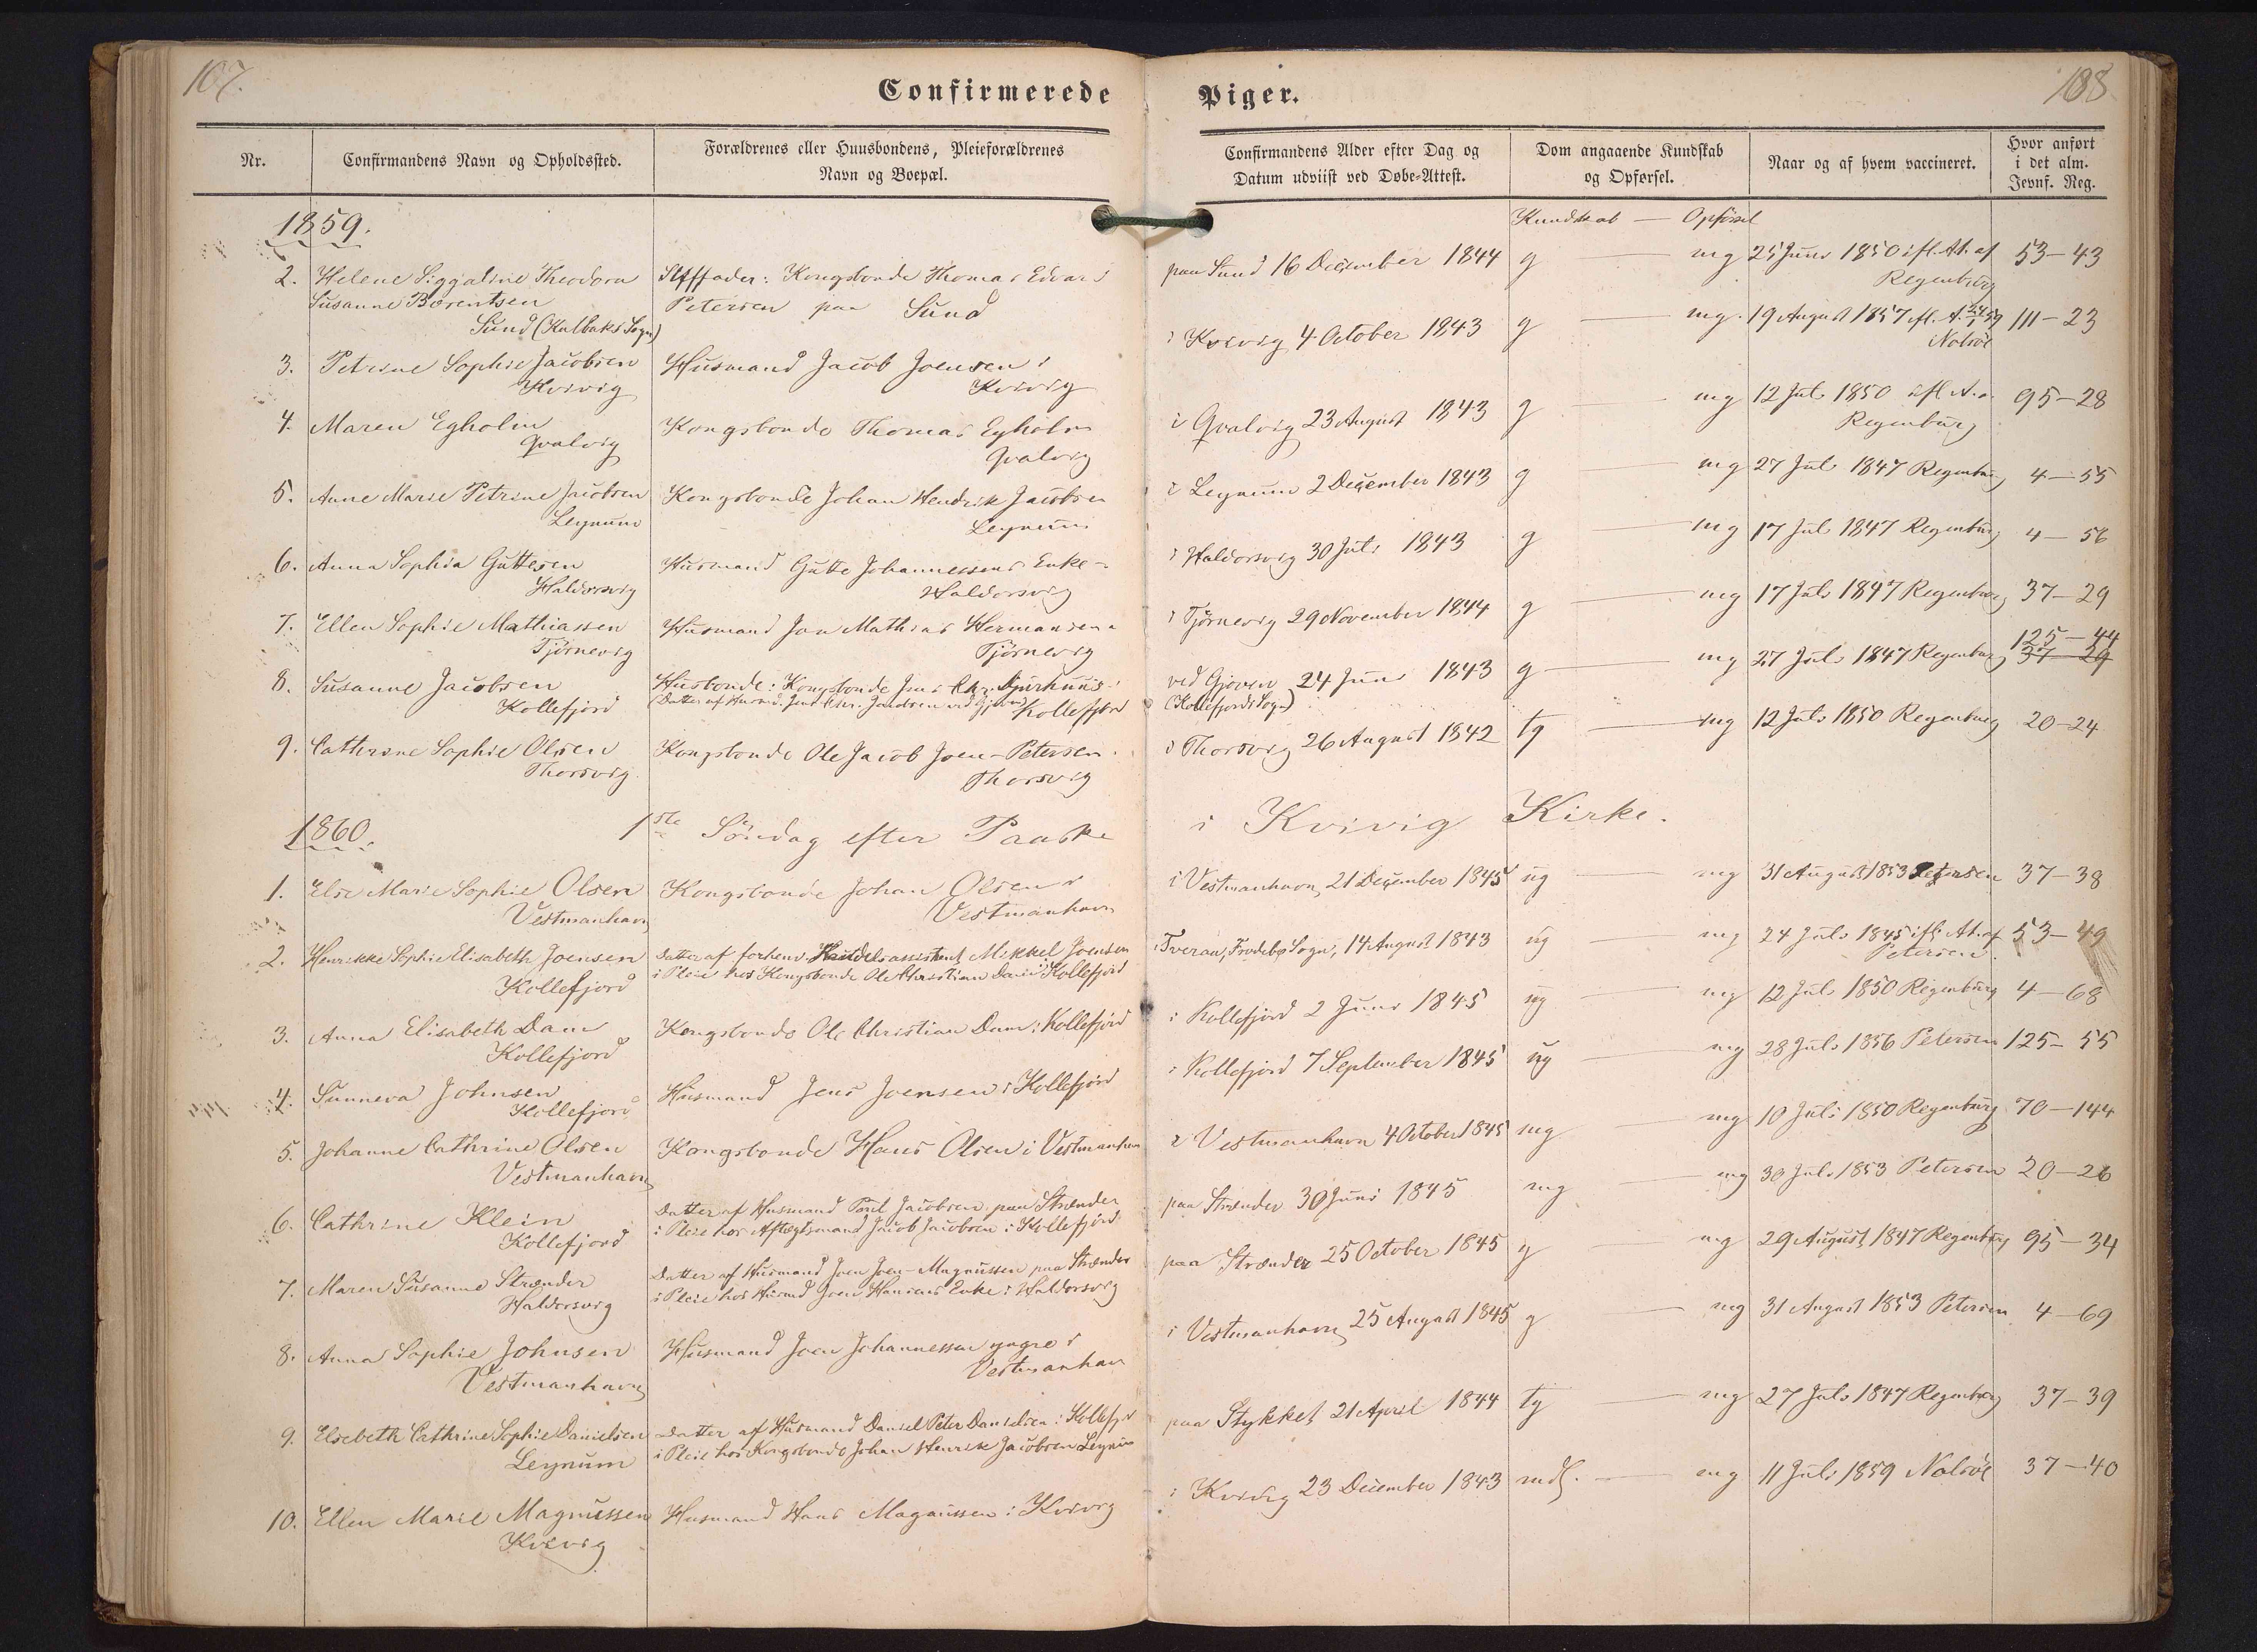 107.
Confirmerede
Nr.
Confirmandens Navn og Opholdssted.
Forældrenes eller Huusbondens, Pleieforældrenes
Navn og Boepæl.
1859.
2. Helene Siggaline Theodora
Susanne Bærentsen
Sund (Kalbaks Sogn)
Stiffader: Kongsbonde Thomas Edvard
Petersen paa Sund
3. Petrine Sophie Jacobsen
Kvivig
Husmand Jacob Joensen i
Kvivig
4. Maren Egholm
Qvalvig
Kongsbonde Thomas Egholm
Qvalvig
5. Anne Marie Petrine Jacobsen
Leynum
Kongsbonde Johan Hendrik Jacobsen
Leynum
6. Anna Sophia Guttesen
Haldorsvig
Husmand Gutte Johannessens Enke
Haldorsvig
7. Ellen Sophie Mathiassen
Tjørnevig
Husmand Jon Mathias Hermansen
Tjørnevig
8. Susanne Jacobsen
Kollefjord
Husbonde: Kongsbonde Jens Chr. Djurhuus i
(Datter af Husmd. Jens Chr. Jacobsen ved Gjoven) Kollefjord
9. Cathrine Sophie Olsen
Thorsvig
Kongsbonde Ole Jacob Joen-Petersen
Thorsvig
1860. 1ste Søndag efter Paaske
1. Else Marie Sophie Olsen
Vestmanhavn
Kongsbonde Johan Olsen i
Vestmanhavn
2. Henrikke Sophie Elisabeth Joensen
Kollefjord
Datter af forhenv. Handelsassistent Mikkel Joensen
i Pleie hos Kongsbonde Ole Christian Dam i Kollefjord
3. Anna Elisabeth Dam
Kollefjord
Kongsbonde Ole Christian Dam i Kollefjord
4. Sunneva Johnsen
Kollefjord
Husmand Jens Joensen i Kollefjord
5. Johanne Cathrine Olsen
Vestmanhavn
Kongsbonde Hans Olsen i Vestmanhavn
6. Cathrine Klein
Kollefjord
Datter af Husmand Poul Jacobsen paa Strænder
i Pleie hos Aftægtsmand Jacob Jacobsen i Kollefjord
7. Maren Susanne Strænder
Haldorsvig
Datter af Husmand Joen Joen-Magnussen paa Strænder
i Pleie hos Husmd Joen Hansens Enke i Haldorsvig
8. Anna Sophie Johnsen
Vestmanhavn
Husmand Joen Johannessen yngre i
Vestmanhavn
9. Elsebeth Cathrine Sophie Danielsen
Leynum
Datter af Husmand Daniel Peter Danielsen i Kollefjd
i Pleie hos Kongsbonde Johan Henrik Jacobsen Leynum
10. Ellen Marie Magnussen
Kvivig
Husmand Hans Magnussen i Kvivig
Piger.
108
Confirmandens Alder efter Dag og
Datum udviist ved Døbe-Attest.
Dom angaaende Kundskab
og Opførsel.
Naar og af hvem vaccineret.
Hvor anført
i det alm.
Jevnf. Reg.
Kundskab — Opførsel
paa Sund 16 December 1844 g — mg 25 Juni 1850 ifl. At. af 53-43
Regenburg
i Kvivig 4 October 1843 g — mg. 19 August 1857 111-23
Nolsöe
i Qvalvig 23 August 1843 g — mg 12 Juli 1850 95-28
Regenburg
i Leynum 2 December 1843 g — mg 27 Juli 1847 Regenburg 4-55
i Haldorsvig 30 Juli 1843 g — mg 17 Juli 1847 Regenburg 4-56
i Tjørnevig 29 November 1844 g — mg 17 Juli 1847 Regenburg 37-29
125-44
ved Gjoven 24 Juni 1843 g — mg 27 Juli 1847 Regenburg 37-29
(Kollefjords Sogn)
i Thorsvig 26 August 1842 tg — mg 12 Juli 1850 Regenburg 20-24
i Kvivig Kirke.
i Vestmanhavn 21 December 1845 ug — mg 31 August 1853 Petersen 37-38
i Tveraa, Frodebø Sogn, 14 August 1843 ug — mg 24 Juli 1845 ifl. At. af 53-49
Petersen.
i Kollefjord 2 Juni 1845 ug — mg 12 Juli 1850 Regenburg 4-68
i Kollefjord 7 September 1845 ug — mg 28 Juli 1856 Petersen 125-55
i Vestmanhavn 4 October 1845 mg — mg 10 Juli 1850 Regenburg 70-144
paa Strænder 30 Juni 1845 mg — mg 30 Juli 1853 Petersen 20-26
paa Strænder 25 October 1845 g — mg 29 August 1847 Regenburg 95-34
i Vestmanhavn 25 August 1845 g — mg 31 August 1853 Petersen 4-69
paa Stykket 21 April 1844 tg — mg 27 Juli 1847 Regenburg 37-39
i Kvivig 23 December 1843 mdl. — mg 11 Juli 1859 Nolsöe 37-40